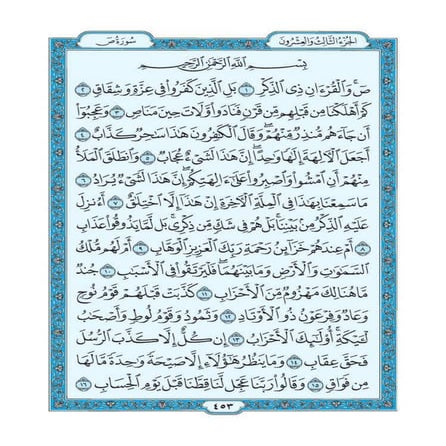 الجزء الثالث والعشرون
سورة ص
بسم الله الرحمن الرحيم
ص والقرءان ذي الذكر ١ بل الذين كفروا في عزة وشقاق ٢
كم أهلكنا من قبلهم من قرن فنادوا ولات حين مناص ٣ وعجبوا
أن جاءهم منذر منهم وقال الكفرون هذا سحر كذاب ٤
أجعل الألهة إلها وحدا إن هذا لشيء عجاب ٥ وانطلق الملأ
منهم أن امشوا واصبروا على ءالهتكم إن هذا لشيء يراد ٦
ما سمعنا بهذا في الملة الأخرة إن هذا إلا اختلق ٧ أءنزل
عليه الذكر من بيننا بل هم في شك من ذكري بل لما يذوقوا عذاب
٨ أم عندهم خزاين رحمة ربك العزيز الوهاب ٩ أم لهم ملك
السموت والأرض وما بينهما فليرتقوا في الأسبب ١٠ جند
ما هنالك مهزوم من الأحزاب ١١ كذبت قبلهم قوم نوح
وعاد وفرعون ذو الأوتاد ١٢ وثمود وقوم لوط وأصحب
لـيكة أولـيك الأحزاب ١٣ إن كل إلا كذب الرسل
فحق عقاب ١٤ وما ينظر هؤلاء إلا صيحة وحدة ما لها
من فواق ١٥ وقالوا ربنا عجل لنا قطنا قبل يوم الحساب ١٦
٤٥٣